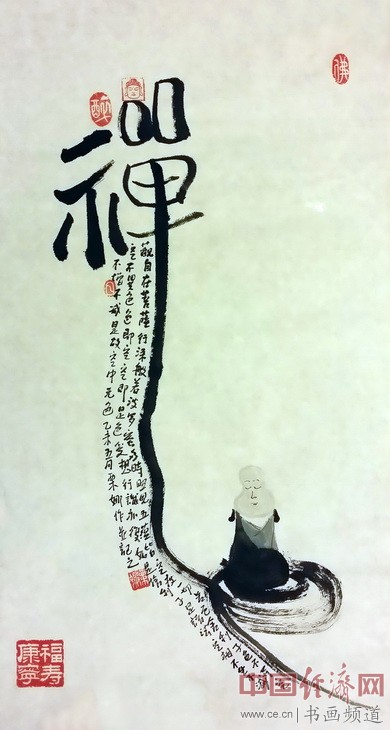 禪
佛
醉
觀自在菩薩行深般若波罗蜜多時照見五蕴皆空
空不異色色即空空即是色受想行識亦復如是
不增不减是故空中无色乙未五月栗娜作並記之
福寿
康寧
中国经济网
www.ce.cn 书画频道